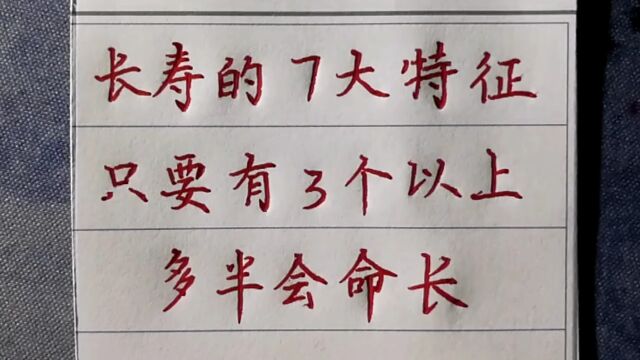 长寿的7大特征
只要有3个以上
多半会命长